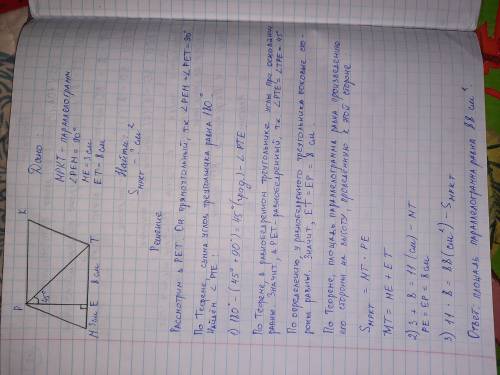 Дано
MPKT - параллелограмм
∠PEM = 90°
ME = 3 см
ET = 8 см
Найти:
S MPKT - ? см²
P
K
45°
M 3см E 8 см T
Решение
Рассмотрим △ PET. Он прямоугольный, т.к ∠PEM = ∠PET = 90°
По Теореме, сумма углов треугольника равна 180°
Найдём ∠ PTE.
1) 180° - (45° + 90°) = 45° (град.) - ∠ PTE
По Теореме, в равнобедренном треугольнике углы при основании
равны. Значит, △ PET - равнобедренный, т.к ∠PTE = ∠TPE = 45°
По определению у равнобедренного треугольника боковые сто-
роны равны. Значит, ET = EP = 8 см
По Теореме, площадь параллелограмма равна произведению
его стороны на высоту, проведённую к этой стороне.
S MPKT = MT · PE
MT = ME + ET
2) 3 + 8 = 11 (см) - MT
PE = EP = 8 см
3) 11 · 8 = 88 (см²) - S MPKT
Ответ: площадь параллелограмма равна 88 см²